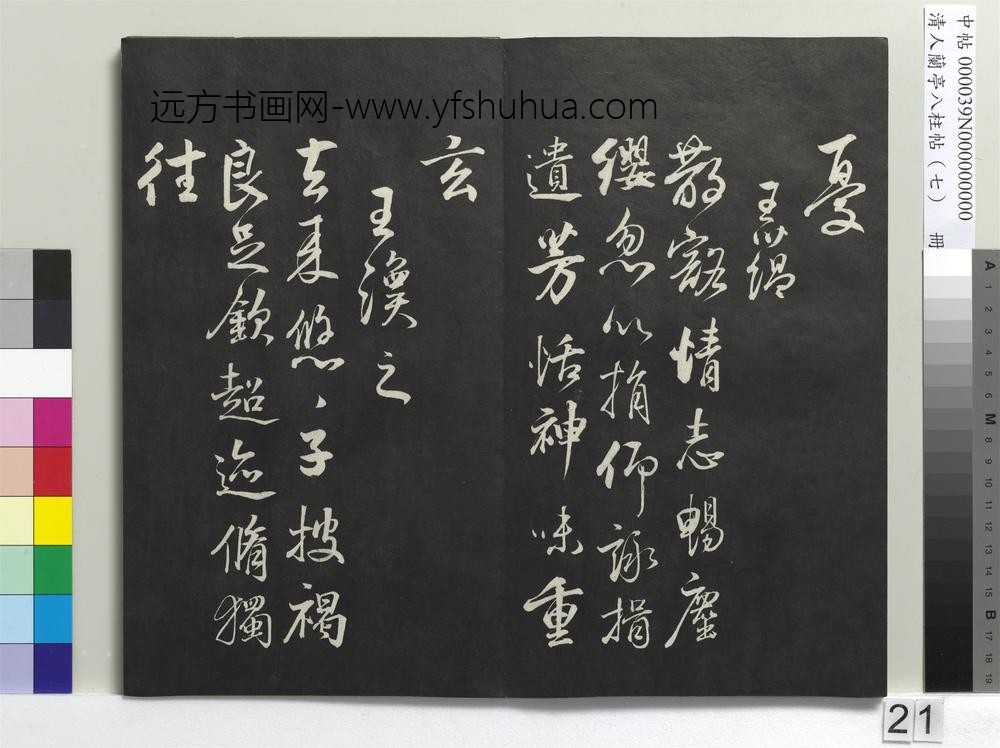 远方书画网-www.yfshuhua.com
憂
王蘊
散豁情志暢塵
纓忽以捐仰詠揖
遺芳恬神味重
玄
王渙之
去來悠〻子披褐
良足欽超迹脩獨
往
中帖 000039N000000000
清人蘭亭八柱帖（七） 冊
A 1 2 3 4 5 6 M 8 9 10 11 12 13 14 15 B 17 18 19
21